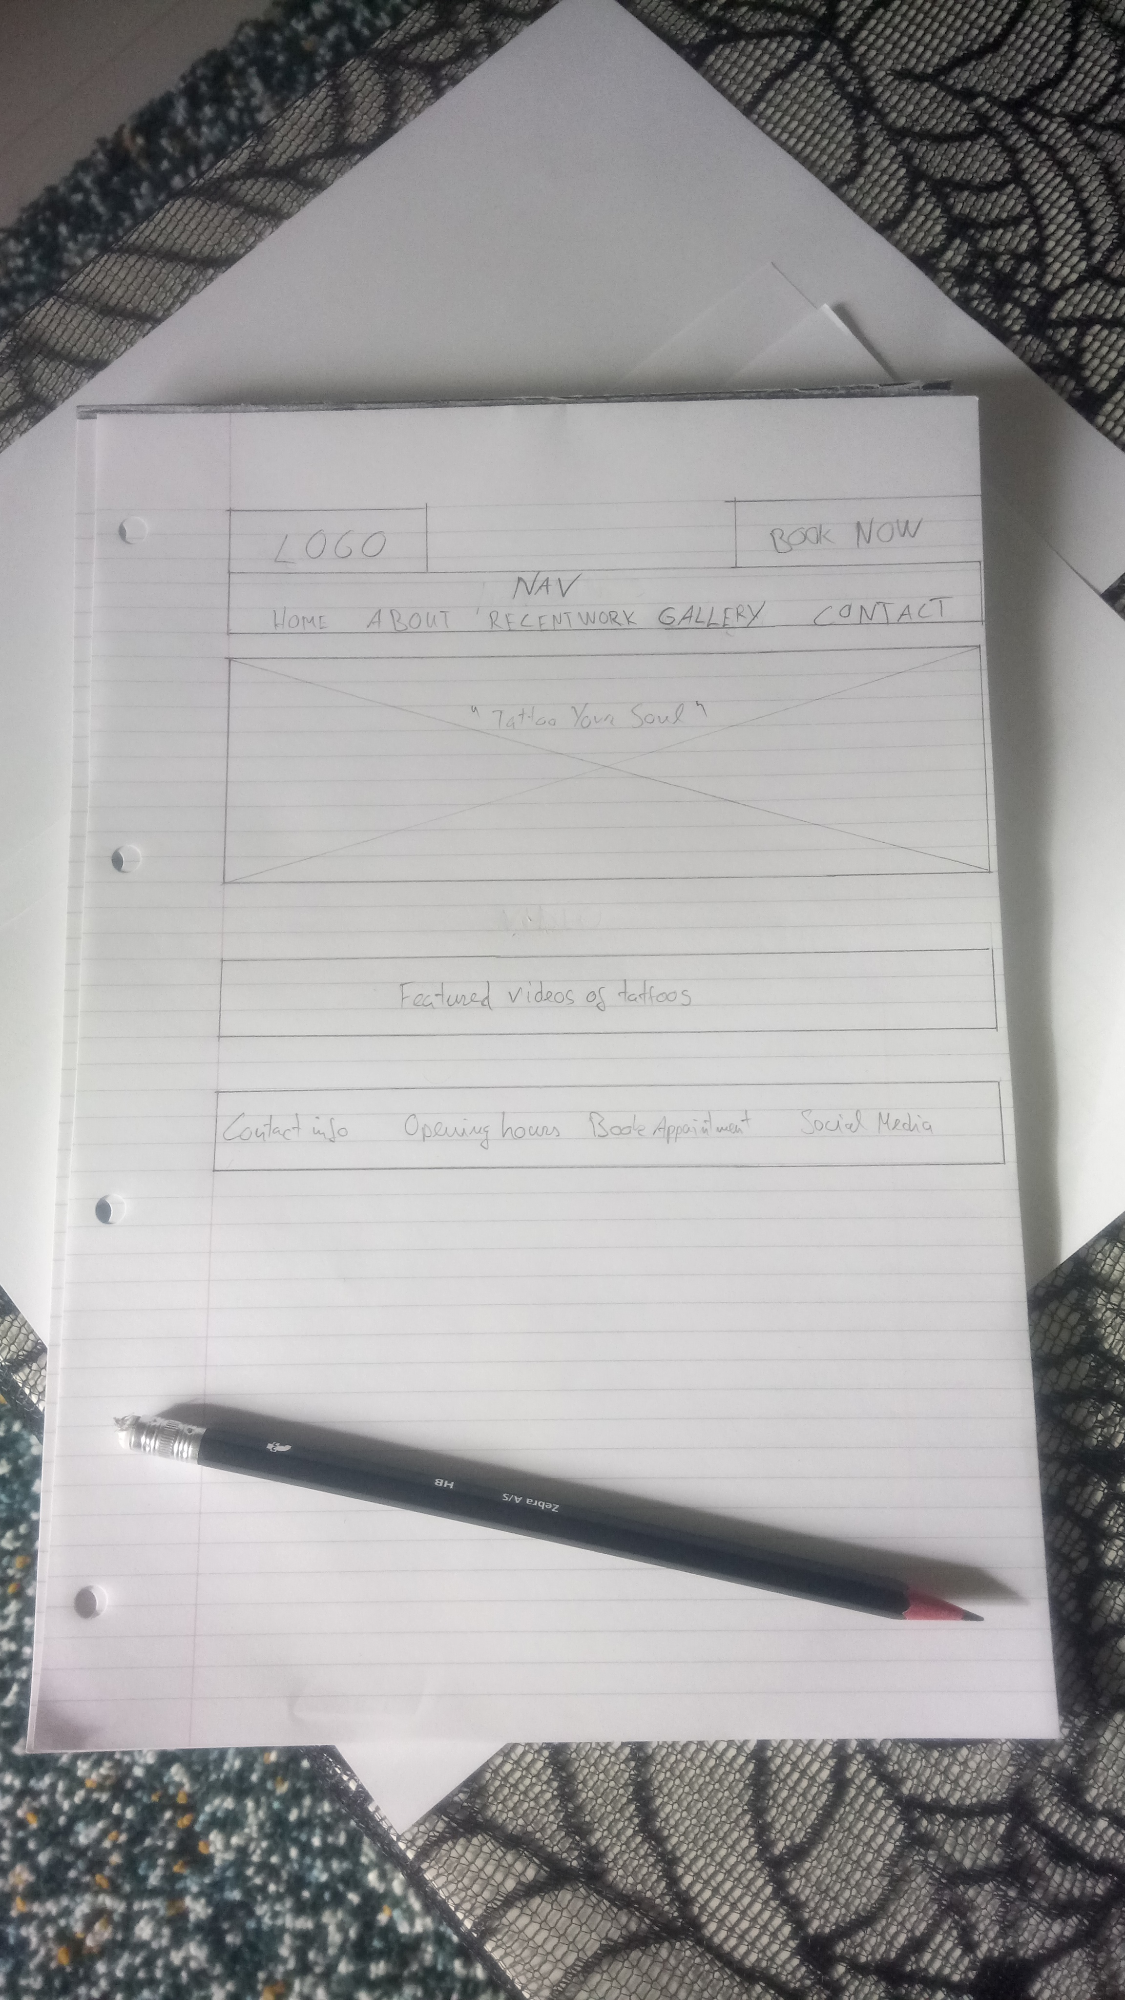 LOGO
BOOK NOW
NAV
HOME ABOUT RECENT WORK GALLERY CONTACT
"Tattoo Your Soul"
Featured videos of tattoos
Contact info Opening hours Book Appointment Social Media
HB Zebra A/S